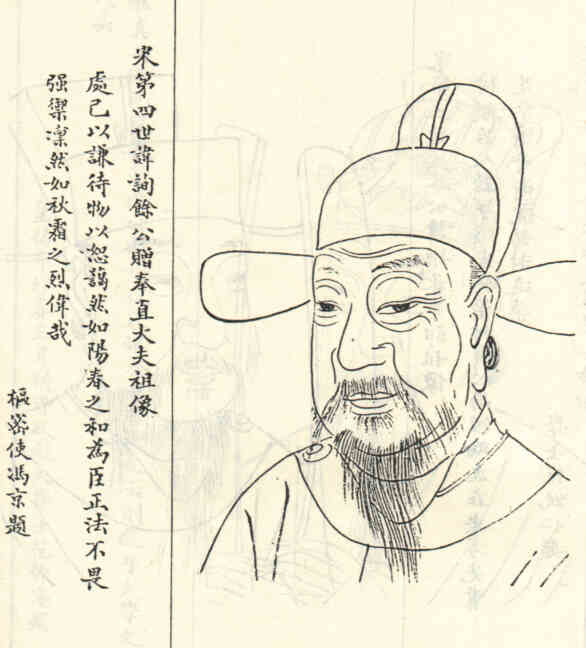 宋第四世諱詢餘公贈奉直大夫祖像
處己以謙待物以恕藹然如陽春之和為臣正法不畏
强禦凜然如秋霜之烈偉哉
樞密使馮京題